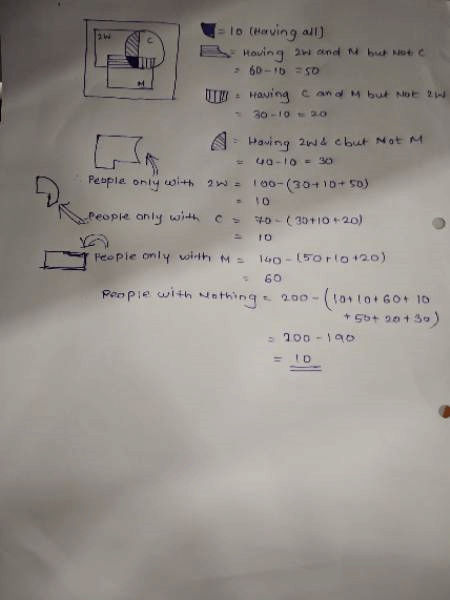 2W
C
M
= 10 (Having all)
= Having 2W and M but Not C
= 60-10 = 50
= Having C and M but Not 2W
= 30-10 = 20
= Having 2W & C but Not M
= 40-10 = 30
∴ People only with 2W = 100-(30+10+50)
= 10
People only with C = 70-(30+10+20)
= 10
People only with M = 140-(50+10+20)
= 60
∴ People with Nothing = 200-(10+10+60+10
+50+20+30)
= 200-190
= 10